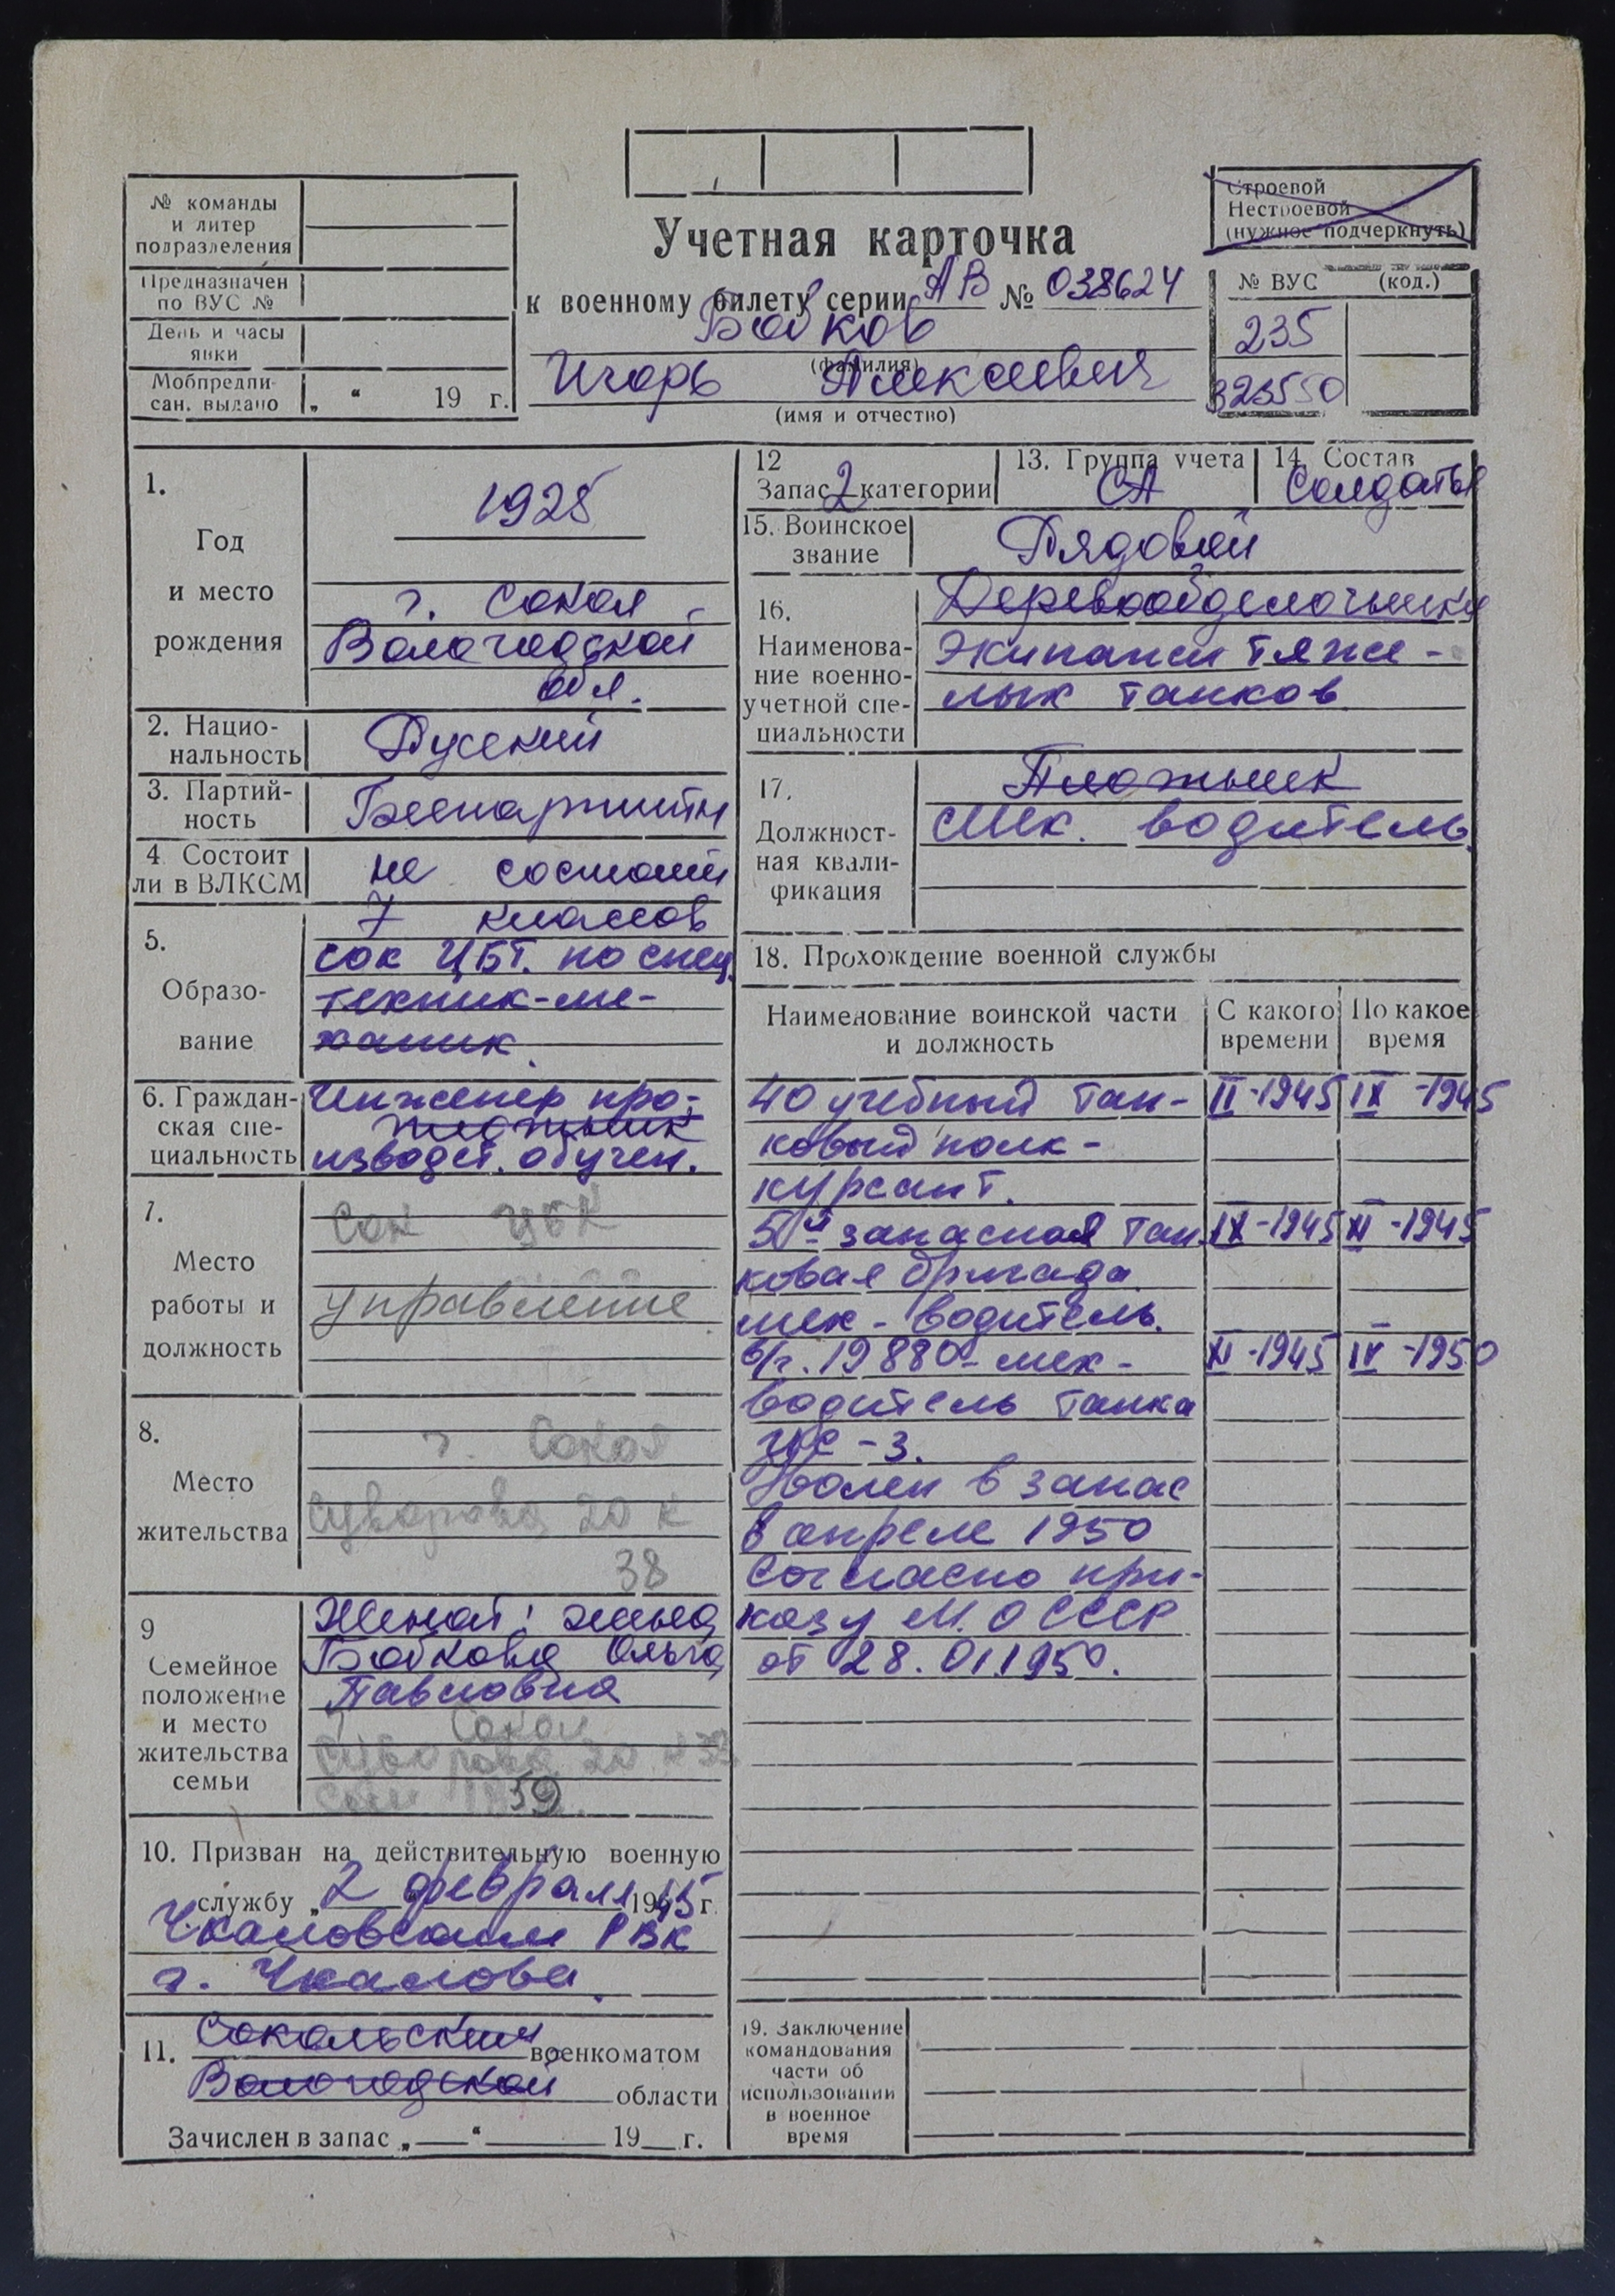 № команды
и литер
подразделения
Предназначен
по ВУС №
День и часы
явки
Мобпредпи-
сан. выдано „ “ 19 г.
Строевой
Нестроевой
(нужное подчеркнуть)
Учетная карточка
к военному билету серии АВ № 038624
Бобков
(фамилия)
Игорь Алексеевич
(имя и отчество)
№ ВУС (код.)
235
323550
1.
Год
и место
рождения
1925
г. Сокол
Вологодской
обл.
2. Нацио-
нальность
Русский
3. Партий-
ность
4. Состоит
ли в ВЛКСМ
не состоит
5.
Образо-
вание
7 классов
сок ЦБТ. по спец.
техник-ме-
ханик.
6. Граждан-
ская спе-
циальность
Инженер про-
плотник
изводст. обучен.
7.
Место
работы и
должность
Сок ЦБК
управление
8.
Место
жительства
г. Сокол
Суворова 20 к
38
9
Семейное
положение
и место
жительства
семьи
Женат: жена
Бобкова Ольга
Павловна
Сокол
Суворова 20 к 38
59
10. Призван на действительную военную
службу „ 2 февраля 1945 г.
Чкаловским РВК
г. Чкалова.
11. Сокольским военкоматом
Вологодской области
Зачислен в запас „ “ 19 г.
12
Запас 2 категории
13. Группа учета
СА
14. Состав
Солдаты
15. Воинское
звание
Рядовой
16.
Наименова-
ние военно-
учетной спе-
циальности
Деревообделочники
Экипажи тяже-
лых танков
17.
Должност-
ная квали-
фикация
Плотник
Мех. водитель.
18. Прохождение военной службы
Наименование воинской части
и должность
С какого
времени
По какое
время
40 учебный тан- II-1945 IX-1945
ковый полк-
курсант.
5я запасная тан IX-1945 XI-1945
ковая бригада
мех-водитель.
в/ч. 19880-мех- XI-1945 IV-1950
водитель танка
ИС-3.
Уволен в запас
в апреле 1950
согласно при-
казу М.О СССР
от 28.01.1950.
19. Заключение
командования
части об
использовании
в военное
время